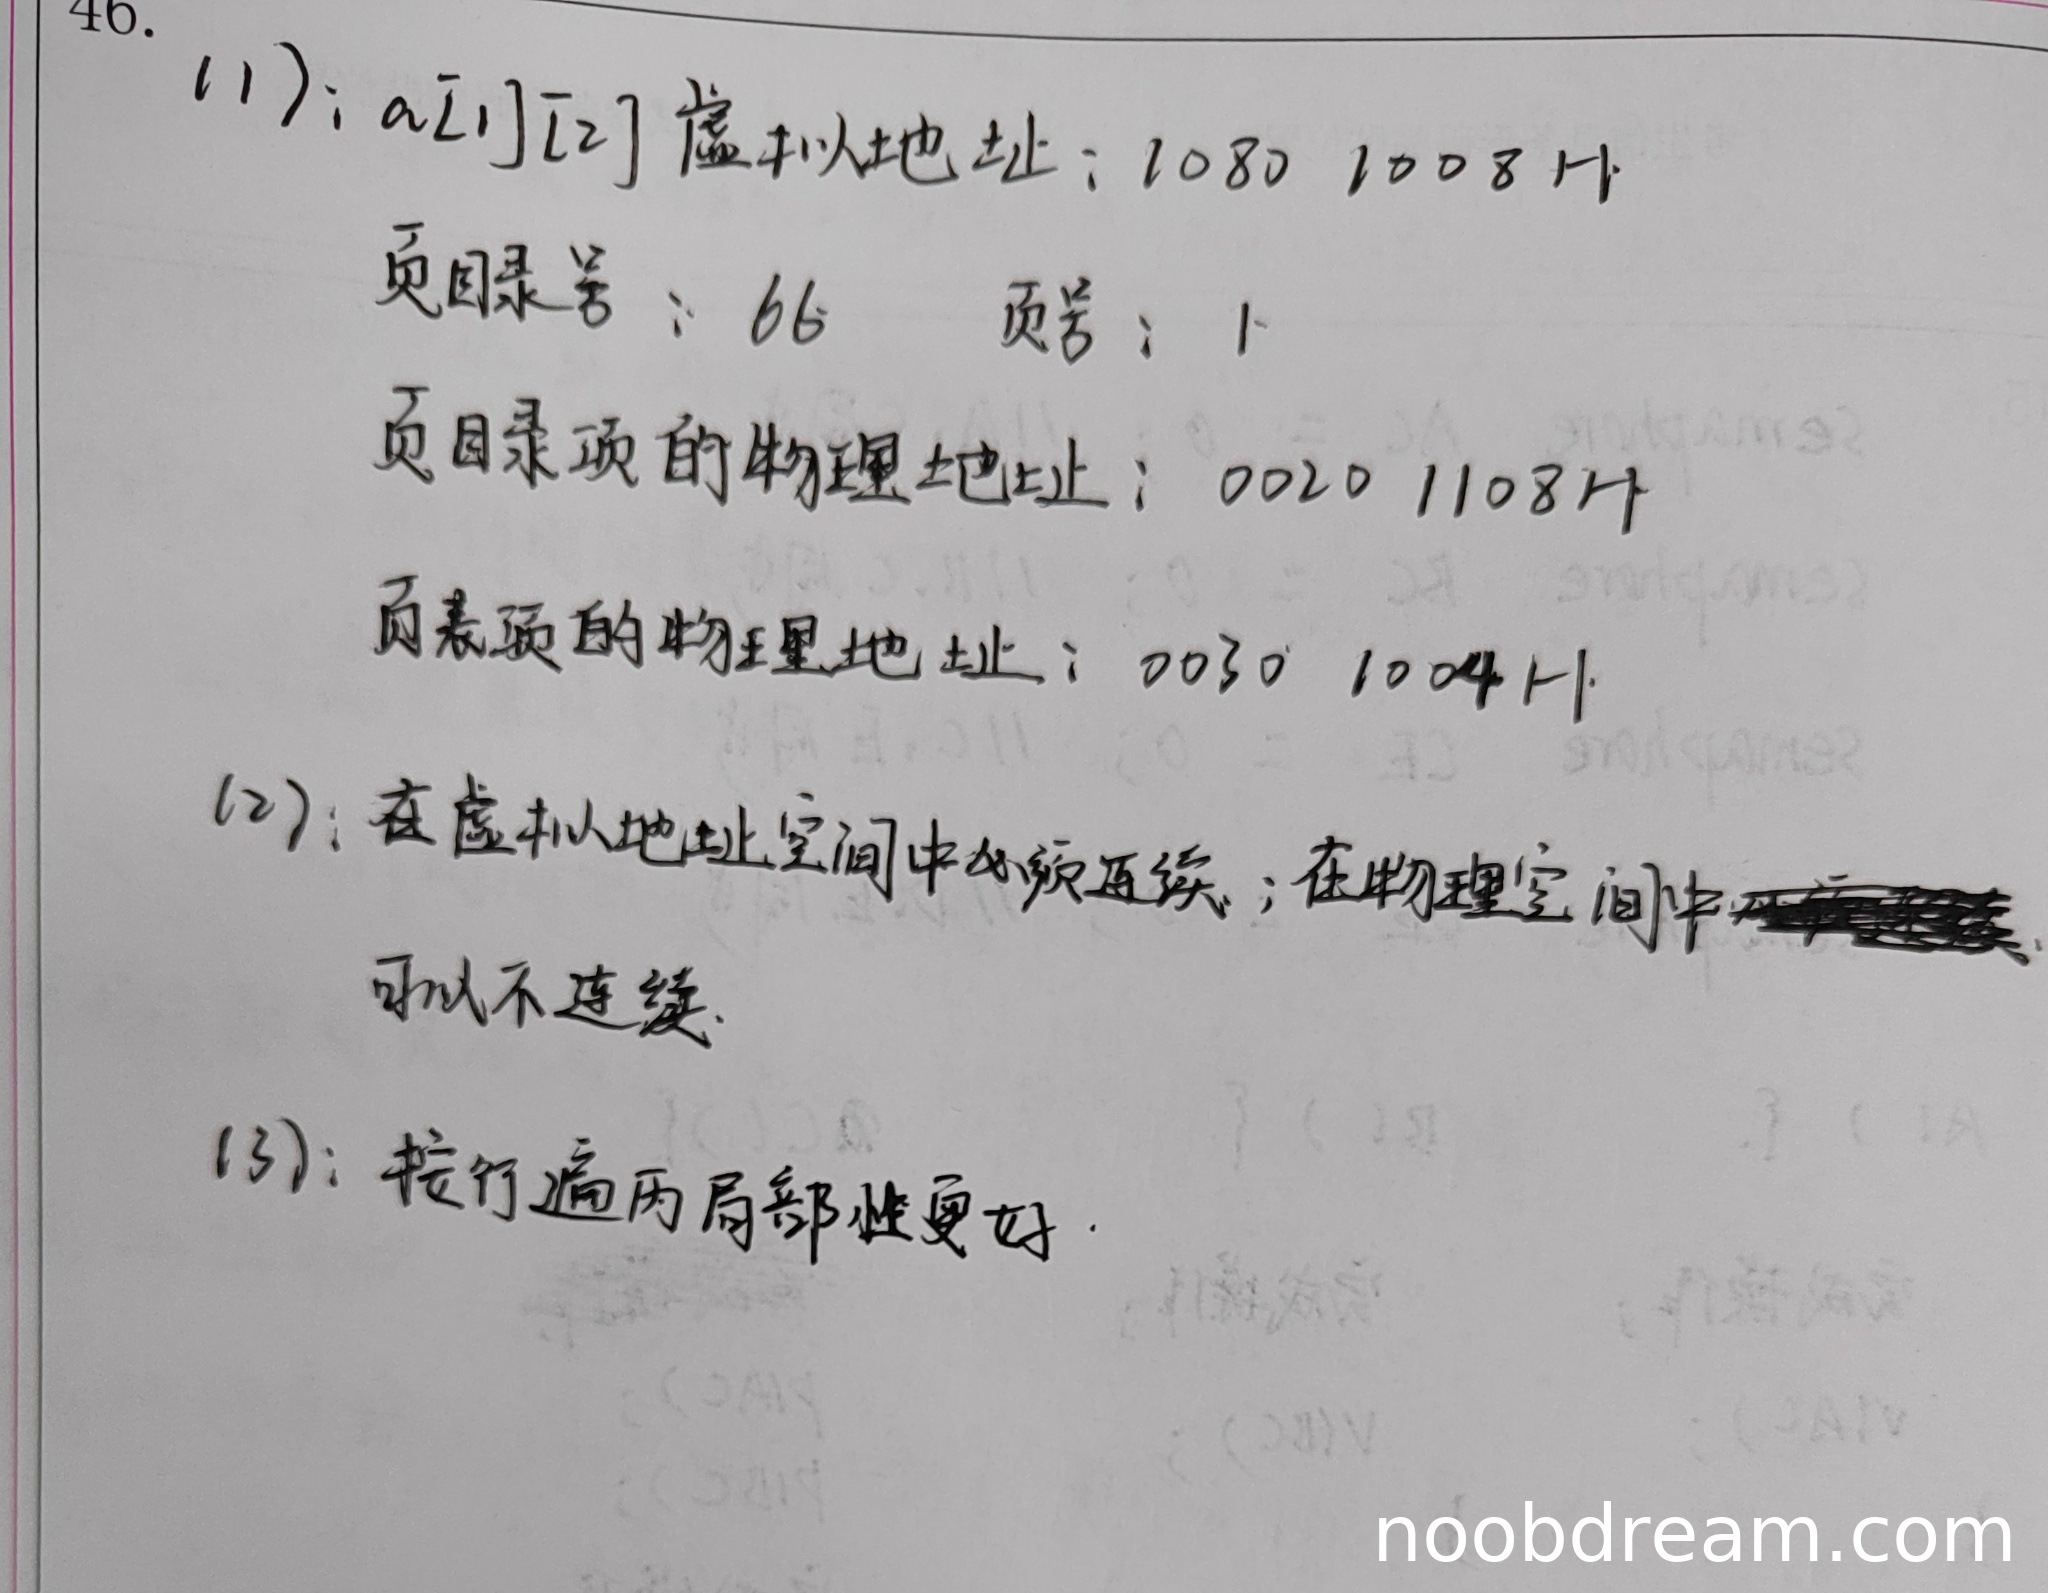 46.
(1): a[1][2] 虚拟地址: 1080 1008H.
页目录号: 66 页号: 1
页目录项的物理地址: 0020 1108H
页表项的物理地址: 0030 1004H.
(2): 在虚拟地址空间中必须连续.; 在物理空间中
可以不连续.
(3): 按行遍历局部性更好.
noobdream.com